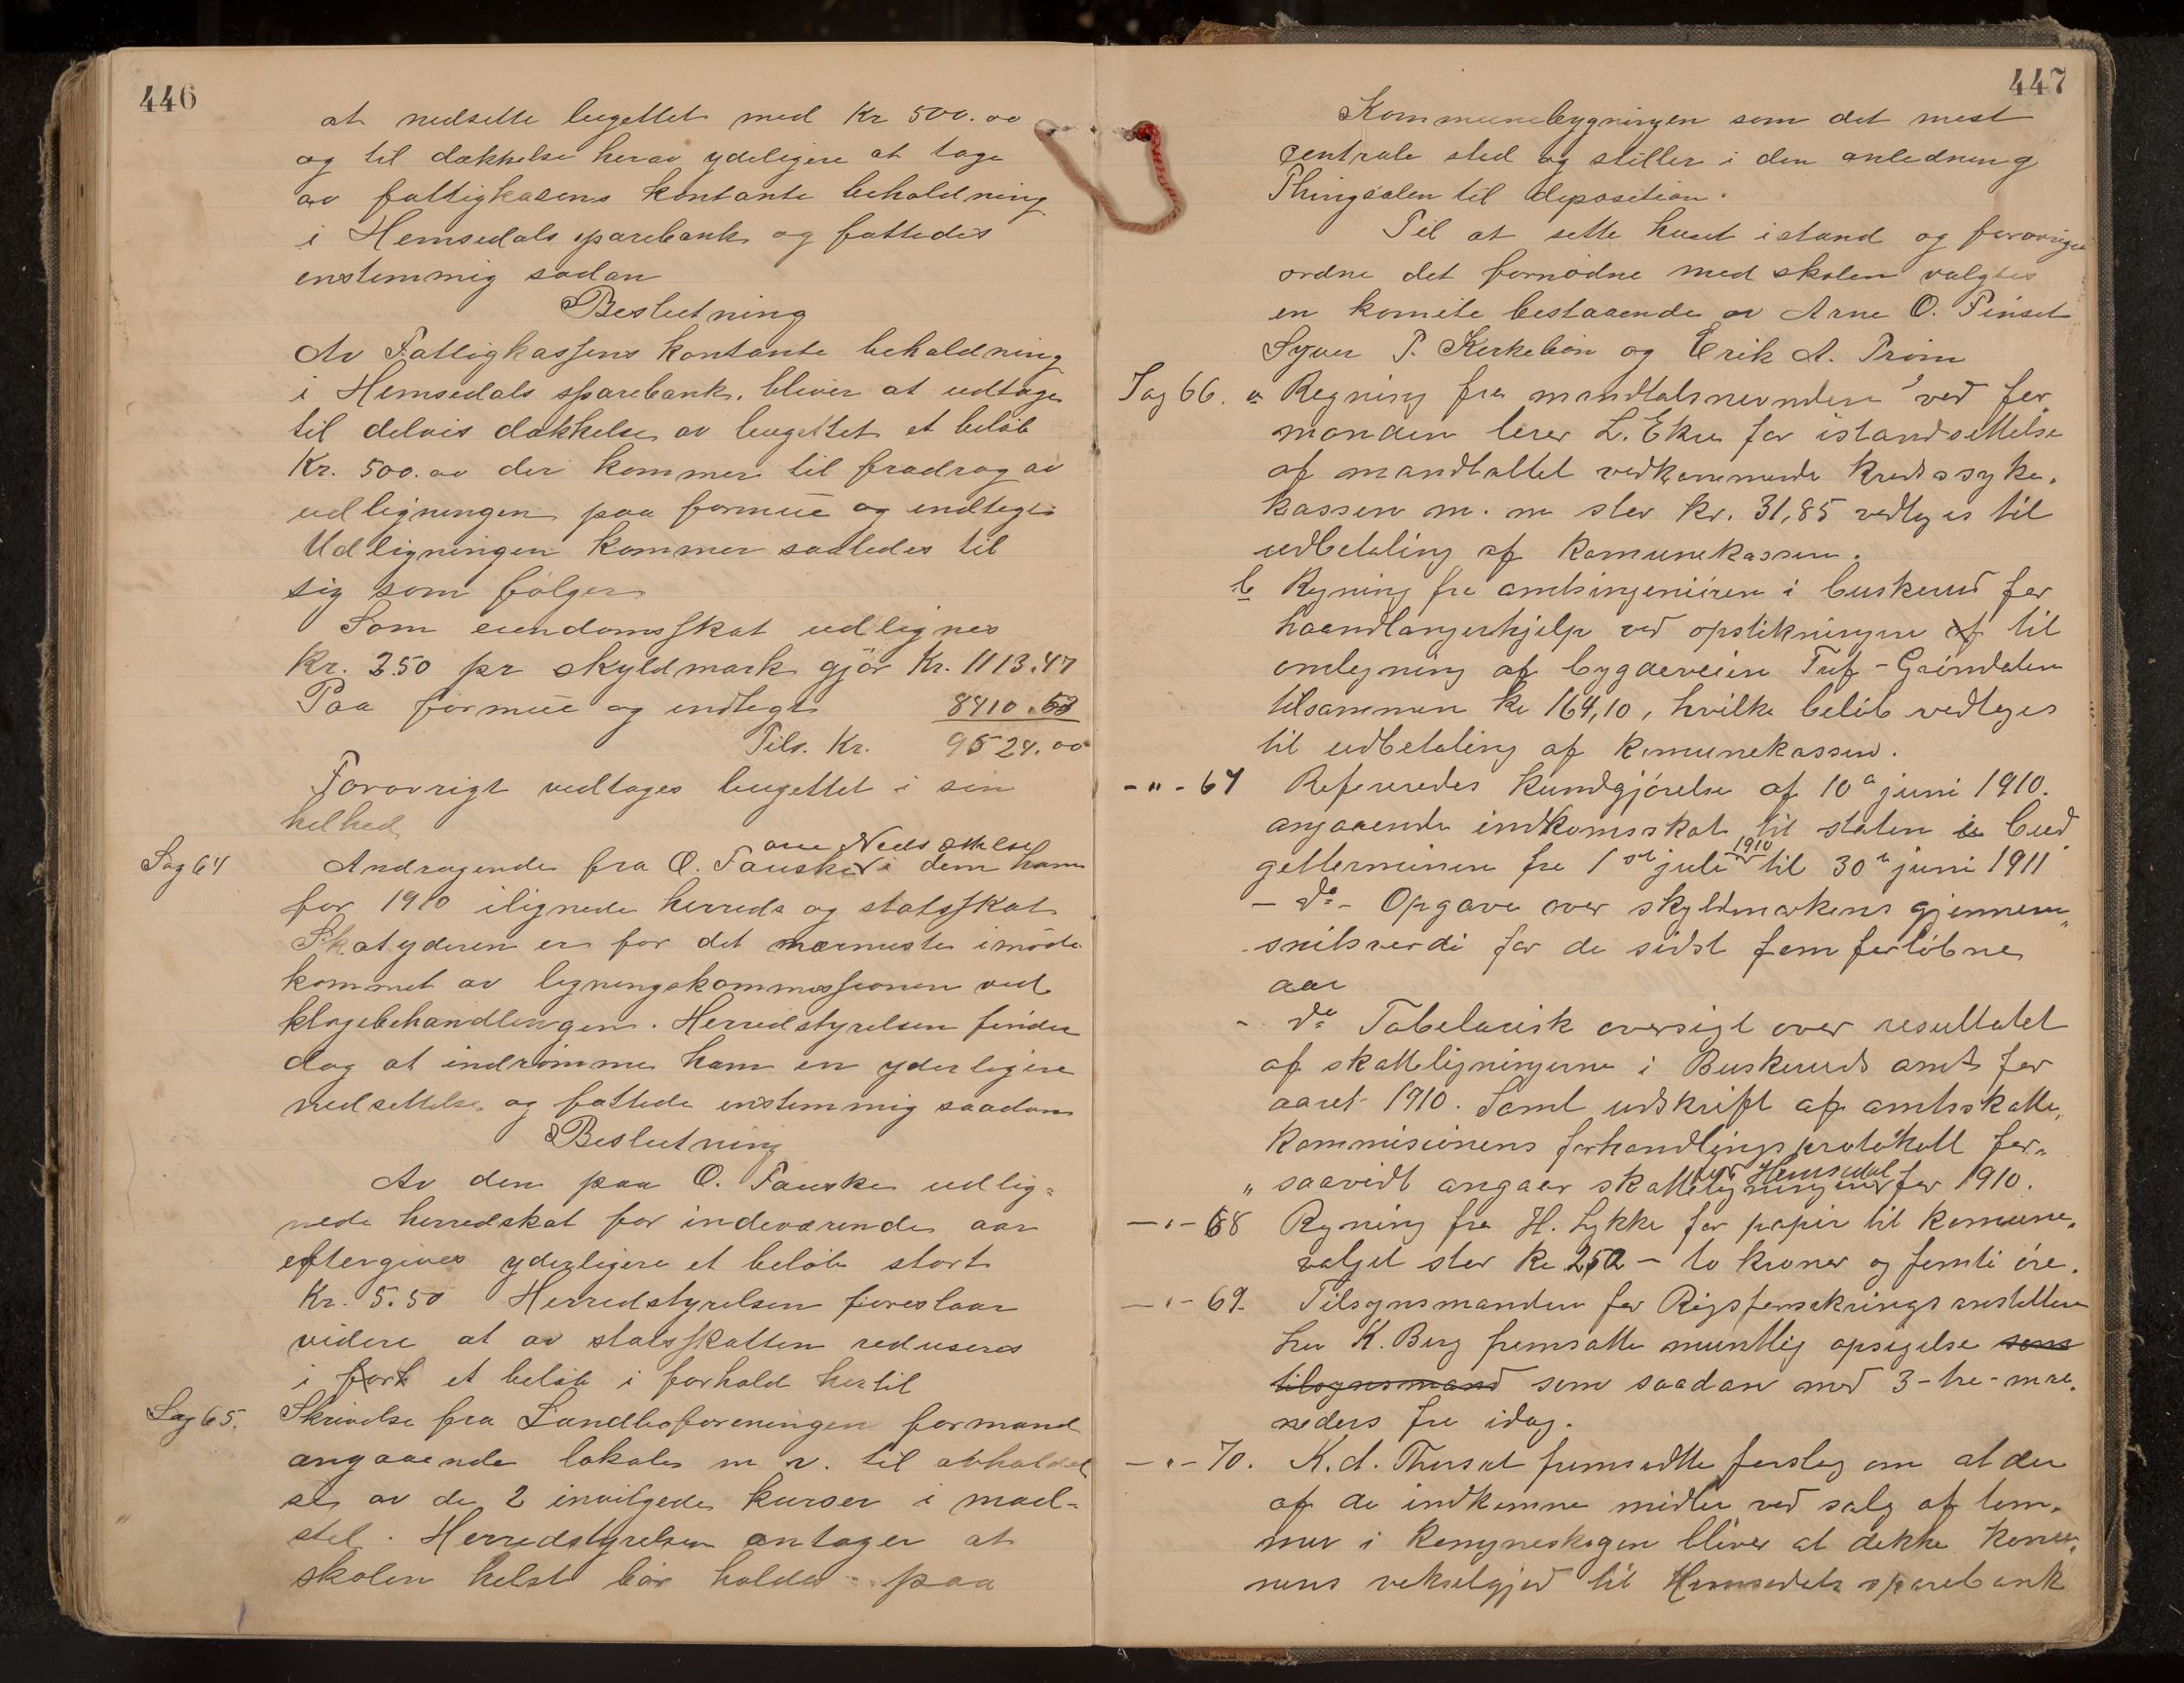 446
at nedsette bugettet med Kr 500.00
og til dækkelse herav ydeligere at tage
av fattigkasens kontante beholdning
i Hemsedals sparebank og fattedes
enstemmig sadan
Beslutning
Av Fattigkassens kontante beholdning
i Hemsedals sparebank. bliver at udtage
til delvis dækkelse av bugettet et beløb
Kr. 500.00 der kommer til fradrag av
udligningen paa formue og indtegt
Udligningen kommer saaledes til
sig som følger
Som eiendomsskat udlignes
Kr. 2.50 pr skyldmark gjør Kr. 1113.47
Paa formue og indtegt 8410.53
Tils. Kr. 9524.00
Forøvrigt vedtages bugettet i sin
helhed
om Nedsættelse
Sag 64 Andragende fra O. Fauske i dem ham
for 1910 ilignede herreds og statsskat
Skatyderen er for det nærmeste imøde
kommet av ligningskommissionen ved
klagebehandlingen. Herredstyrelsen finder
dog at indrømme ham en yderligere
nedsettelse og fattede enstemmig saadan
Beslutning
Av den paa O. Fauske udlig=
nede herredskat for indeværende aar
eftergives yderligere et beløb stort
Kr. 5.50 Herredstyrelsen foreslaar
videre at av statsskatten reduseres
i forh et beløb i forhold hertil
Sag 65. Skrivelse fra Landboforeningen formand
angaaende lokale m v. til avholdel
se av de 2 invilgede kurser i mad-
stel. Herredstyrelsen antager at
skolen helst bør holdes paa
447
Kommunebygningen som det mest
centrale sted og stiller i den anledning
Thingsalen til deposition.
Til at sette huset istand og forøvrigt
ordne det fornødne med skolen valgtes
en komite bestaaende av Arne O. Tinset
Syver P. Kirkebøn og Erik A. Trøim
Sag 66. a Regning fra mandtalsnevnden ved for,
manden lerer L. Ekre for istandsettelse
af mandtallet vedkommende kredssyke,
kassen m. m stor kr. 31,85 vedtages til
udbetaling af komunekassen.
b Regning fra amtsingeniøren i buskerud for
haandlangerhjelp ved opstikningen af til
omlegning af bygdeveien Tuf - Grøndalen
tilsammen kr 164,10, hvilke beløb vedtages
til udbetaling af komunekassen.
- " - 67 Refereredes kundgjørelse af 10de juni 1910.
angaaende indkomsskat til staten i bud
getterminen fra 1ste juli 1910 til 30te juni 1911
- do - Opgave over skyldmarkens gjennem„
snitsverdi for de sidst fem forløbne
aar
- do Tabelarisk oversigt over resultatet
af skatteligningerne i Buskeruds amt for
aaret 1910. Samt udskrift af amtsskatte„
kommisionens forhandlingsprotokoll for„
„ saavidt angaar skatteligningen for Hemsedal for 1910.
- " - 68 Regning fra H. Lykke for papir til komune,
valget stor kr 2,50 - to kroner og femti øre.
- " - 69 Tilsynsmanden for Rigsforsikringsanstalten
hr K. Berg fremsatte muntlig opsigelse som
tilsynsmand som saadan med 3 - tre - maa,
neders fra idag.
- " - 70. K. A. Thorset fremsatte forslag om at der
af de indkomne midler ved salg af tøm,
mer i Komuneskogen bliver at dekke komu,
nens vekselgjed til Hemsedals sparebank